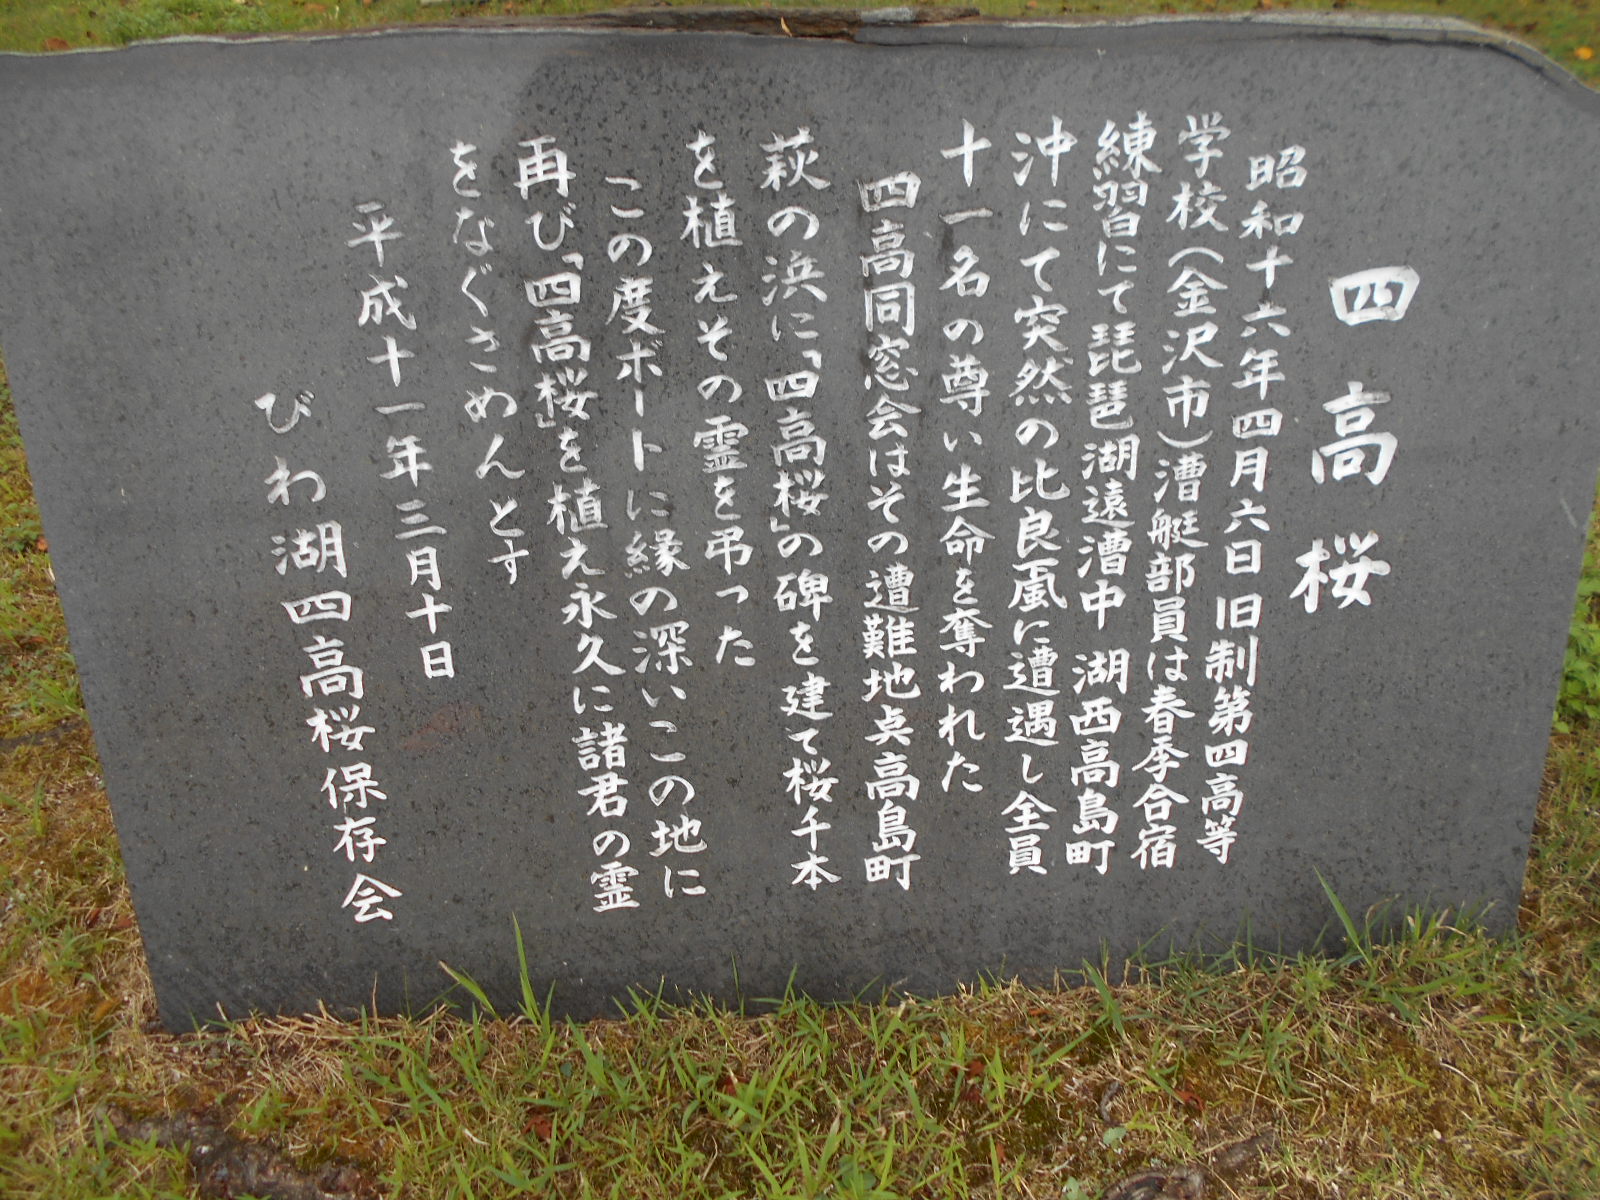 四高桜
昭和十六年四月六日旧制第四高等
学校(金沢市)漕艇部員は春季合宿
練習にて琵琶湖遠漕中 湖西高島町
沖にて突然の比良風に遭遇し全員
十一名の尊い生命を奪われた
四高同窓会はその遭難地点高島町
萩の浜に「四高桜」の碑を建て桜千本
を植えその霊を弔った
この度ボートに縁の深いこの地に
再び「四高桜」を植え永久に諸君の霊
をなぐさめんとす
平成十一年三月十日
びわ湖四高桜保存会